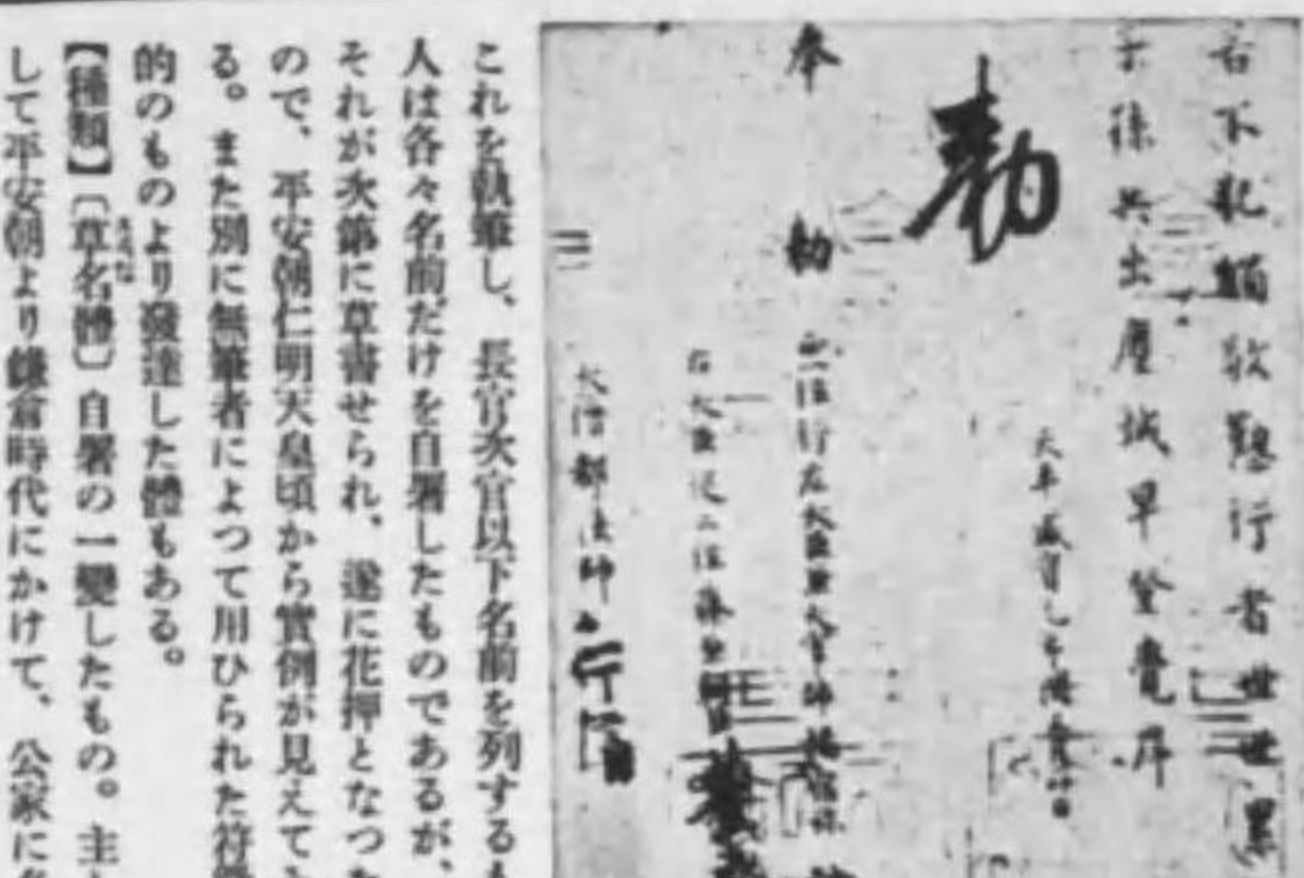 若不犯觸敬懃行者世世累
子孫共出塵城早登覺岸
天平感寶元年閏五月廿日
勅
奉 勅 正一位行左大臣兼大宰帥橘宿祢
右大臣從二位藤原朝臣
大僧都法師行信
これを執筆し、長官次官以下名前を列する
人は各々名前だけを自署したものであるが、
それが次第に草書せられ、遂に花押となつた
ので、平安朝仁明天皇頃から實例が見えて
る。また別に無筆者によつて川ひられた符
的のものより發達した體もある。
【種類】〔草名體〕自署の一變したもの。主
して平安朝より鎌倉時代にかけて、公家に